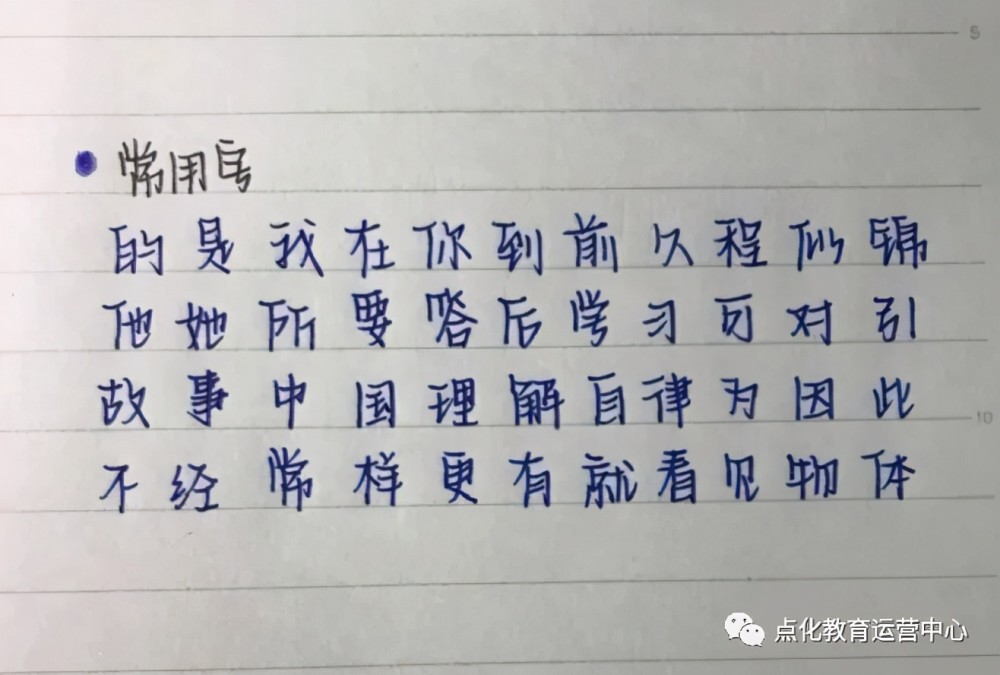 5
常用字
的是我在你到前久程似锦
他她所要答后学习可对引
故事中国理解自律为因此
10
不经常样更有就看见物体
点化教育运营中心